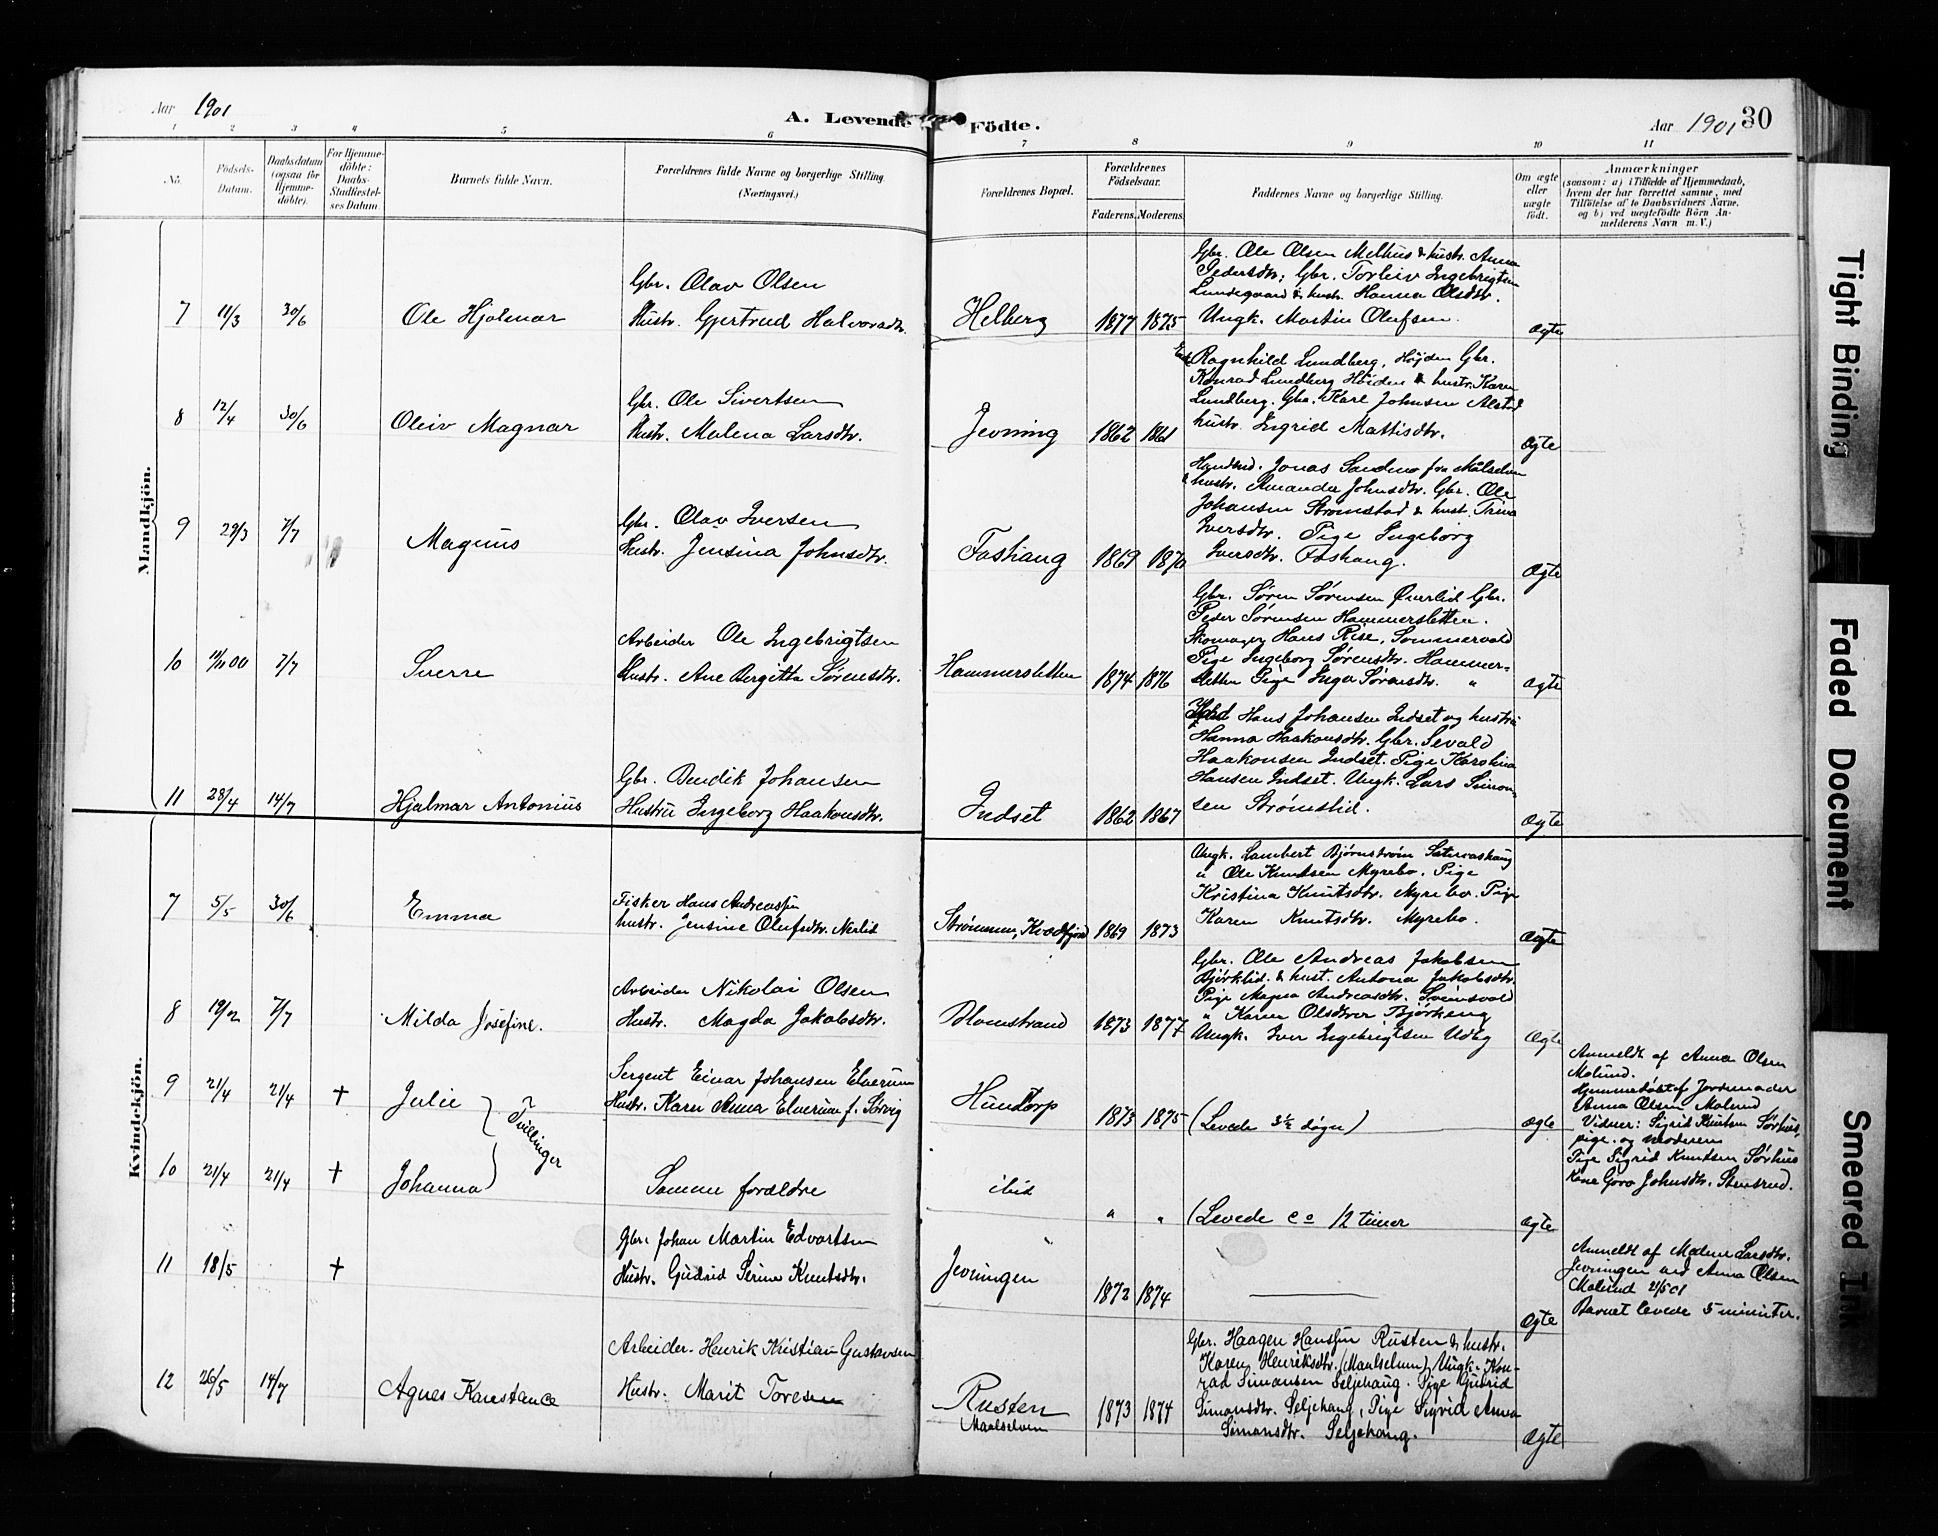 Aar 1901
A. Levende Födte.
Aar 1901
30
1 2 3 4 5 6 7 8 9 10 11
No.
Födsels-Datum.
Daabsdatum (ogsaa för Hjemme-döbte).
For Hjemme-döbte: Daabs-Stadfæstel-ses Datum.
Barnets fulde Navn.
Forældrenes fulde Navne og borgerlige Stilling (Næringsvei.)
Forældrenes Bopæl.
Forældrenes Födselsaar.
Faderens. Moderens.
Faddernes Navne og borgerlige Stilling.
Om ægte eller uægte födt.
Anmærkninger
(saasom: a) i Tilfælde af Hjemmedaab,
hvem der har forrettet samme, med
Tilföielse af to Daabsvidners Navne,
og b) ved uægtefödte Börn An-
melderens Navn m. V.)
Mandkjön.
7 11/3 30/6 Ole Hjalmar
Gbr. Olav Olsen
Hustr. Gjertrud Halvorsdtr.
Helberg 1877 1875
Gbr. Ole Olsen Melhus & hustr. Anna
Pedersdtr; Gbr. Torleiv Ingebrigtsen
Lundegaard & hustr. Hanna Olsdtr.
Ungk. Martin Olufsen.
Ægte
8 12/4 30/6 Oleiv Magnar
Gbr. Ole Sivertsen
Hustr. Malena Larsdtr.
Jevning 1862 1861
Ragnhild Lundberg, Højden Gbr.
Konrad Lundberg Højden & hustr. Karen
Lundberg. Gbr. Karl Johnsen Alstad
hustr. Ingrid Mattisdtr.
Ægte
9 29/3 7/7 Magnus
Gbr. Olav Iversen
Hustr. Jensina Johnsdtr.
Foshaug 1869 1870
Jonas Sandmo fra Målselven
& hustr. Amanda Johnsdtr. Gbr. Ole
Johansen Strømstad & hust. Trina
Iversdtr. Pige Ingeborg
Iversdtr. Foshaug.
Ægte
10 11/11 00 7/7 Sverre
Arbeider Ole Ingebrigtsen
Hustr. Ane Birgitta Sørensdtr.
Hammersletten 1874 1876
Gbr. Søren Sørensen Øverlid Gbr.
Peder Sørensen Hammersletten.
Skomager Hans Rise, Sommervold
Pige Ingeborg Sørensdtr. Hammer-
sletten Pige Inga Sørensdtr. "
Ægte
11 28/4 14/7 Hjalmar Antonius
Gbr. Bendik Johansen
Hustru Ingeborg Haakonsdtr.
Indset 1862 1867
Hans Johansen Indset og hustru
Hanna Haakonsdtr. Gbr. Sevald
Haakonsen Indset. Pige Karolina
Hansen Indset. Ungk. Lars Simon-
sen Strømslid.
Ægte
Kvindekjön.
7 5/5 30/6 Emma
Fisker Hans Andreassen
hustr. Jensine Olufsdtr. Nerlid
Strømmen, Kvædfjord 1869 1873
Ungk. Lambert Bjørnstrøm
" Ole Knutsen Myrebo. Pige
Kristina Knutsdtr. Myrebo. Pige
Karen Knutsdtr. Myrebo.
Ægte
8 19/02 7/7 Milda Josefine.
Arbeider Nikolai Olsen
Hustr. Magda Jakobsdtr.
Blomstrand 1873 1877
Gbr. Ole Andreas Jakobsen
Bjørklid. & hust. Antona Jakobsdtr.
Pige Magna Andreasdtr. Svensvold
" Karen Olsdtrer Bjørkeng
Ungk. Iver Ingebrigtsen Udby
Ægte
9 21/4 21/4 † Julie
Tvillinger
Sergent Einar Johansen Elverum
Hustr. Karen Anna Elverum f. Sørvig
Hundtorp 1873 1875 (Levede 3½ døgn)
Ægte
Anmeldt af Anna Olsen
Molund.
Hjemmedøbt af Jordemoder
Anna Olsen Molund
Vidner: Sigrid Knutsen Sørhus,
pige. og moderen
10 21/4 21/4 † Johanna
Samme forældre
ibid " " (Levede ca 12 timer
Ægte
Pige Sigrid Knutsen Sørhus
Kone Goro Johnsdtr. Stensrud.
11 18/5 †
Gbr. Johan Martin Edvartsen
Hustr. Gudrid Serine Knutsdtr.
Jevningen 1872 1874
Ægte
Anmeldt af Malene Larsdtr.
Jevningen ved Anna Olsen
Molund 21/5 01
Barnet levede 5 minuter.
12 26/5 14/7 Agnes Konstance
Arbeider. Henrik Kristian Gustavsen
Hustr. Marit Toresen
Rusten
Maalselven 1873 1874
Gbr. Haagen Hanssen Rusten & hustr.
Karen Henriksdtr. (Maalselven) Ungk. Kon-
rad Simonsen Seljehaug. Pige Gudrid
Simonsdtr. Seljehaug, Pige Sigrid Anna
Simonsdtr. Seljehaug.
Ægte
Tight Binding
Faded Document
Smeared Ink